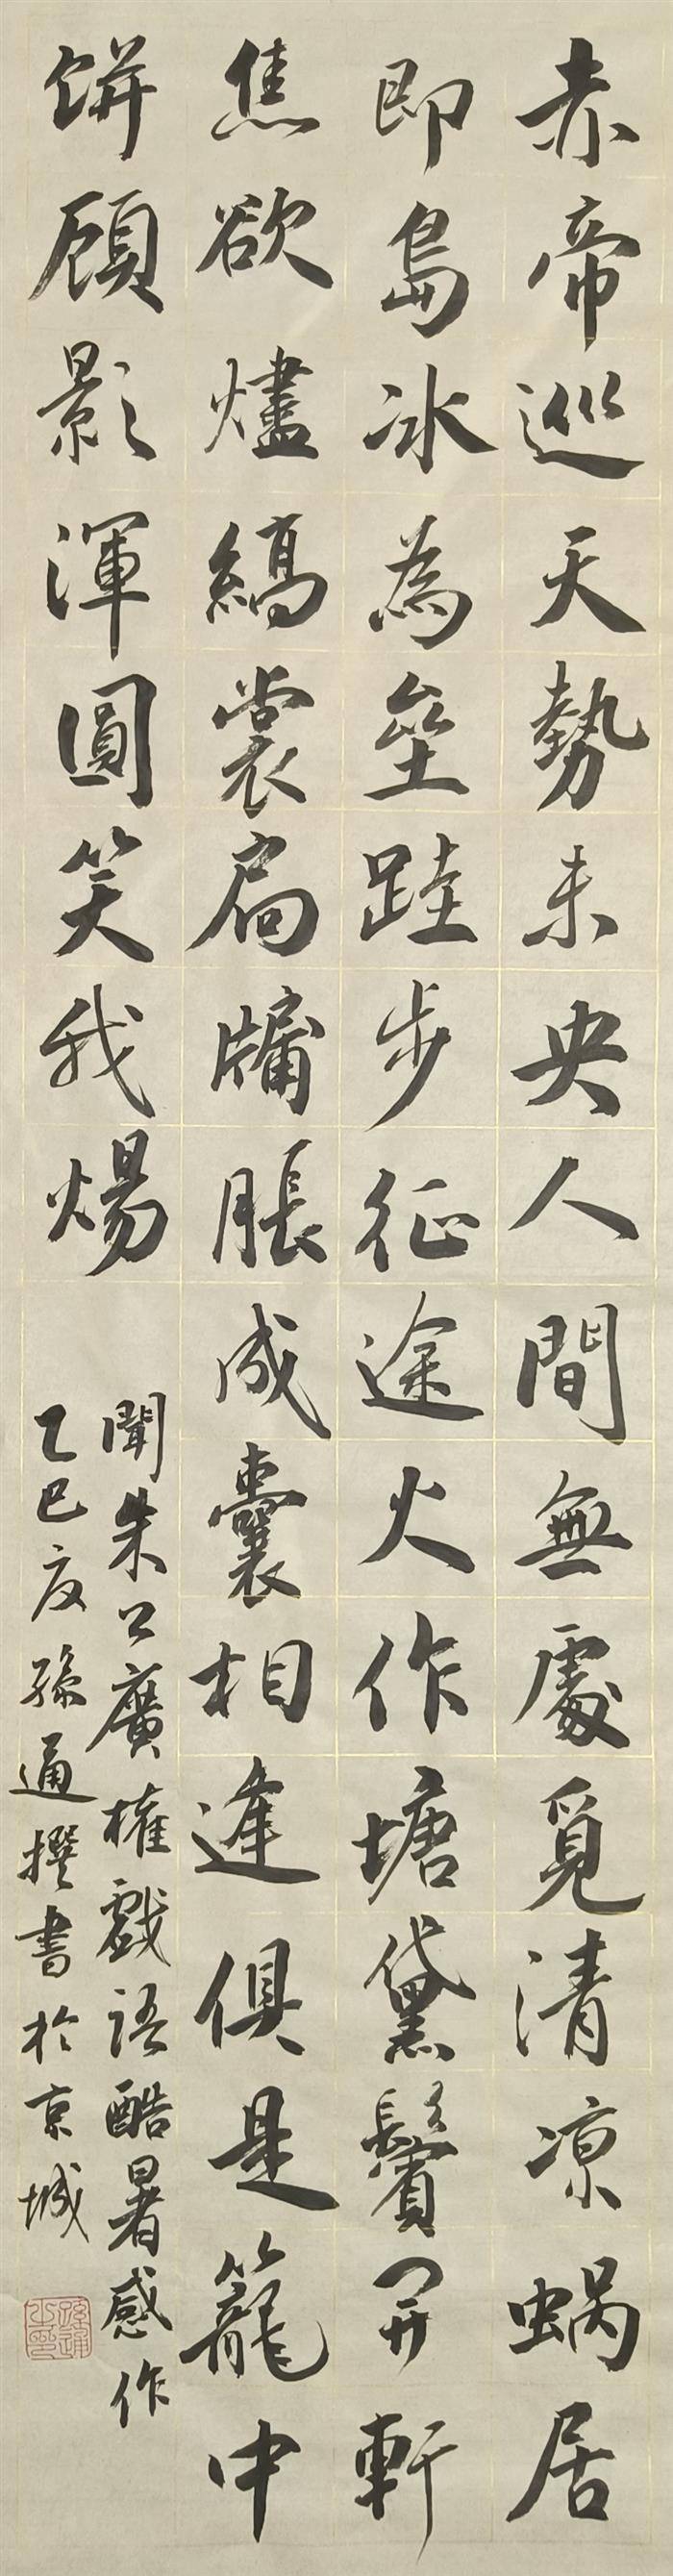 赤帝巡天勢未央人間無處覓清涼蝸居
即島冰為壘跬步征途火作塘黛鬢開軒
焦欲燼縞裳扃牖脹成囊相逢俱是籠中
餅顧影渾圓笑我煬
聞朱公廣權戲語酷暑感作
乙巳夜孫通撰書於京城
孫通之印